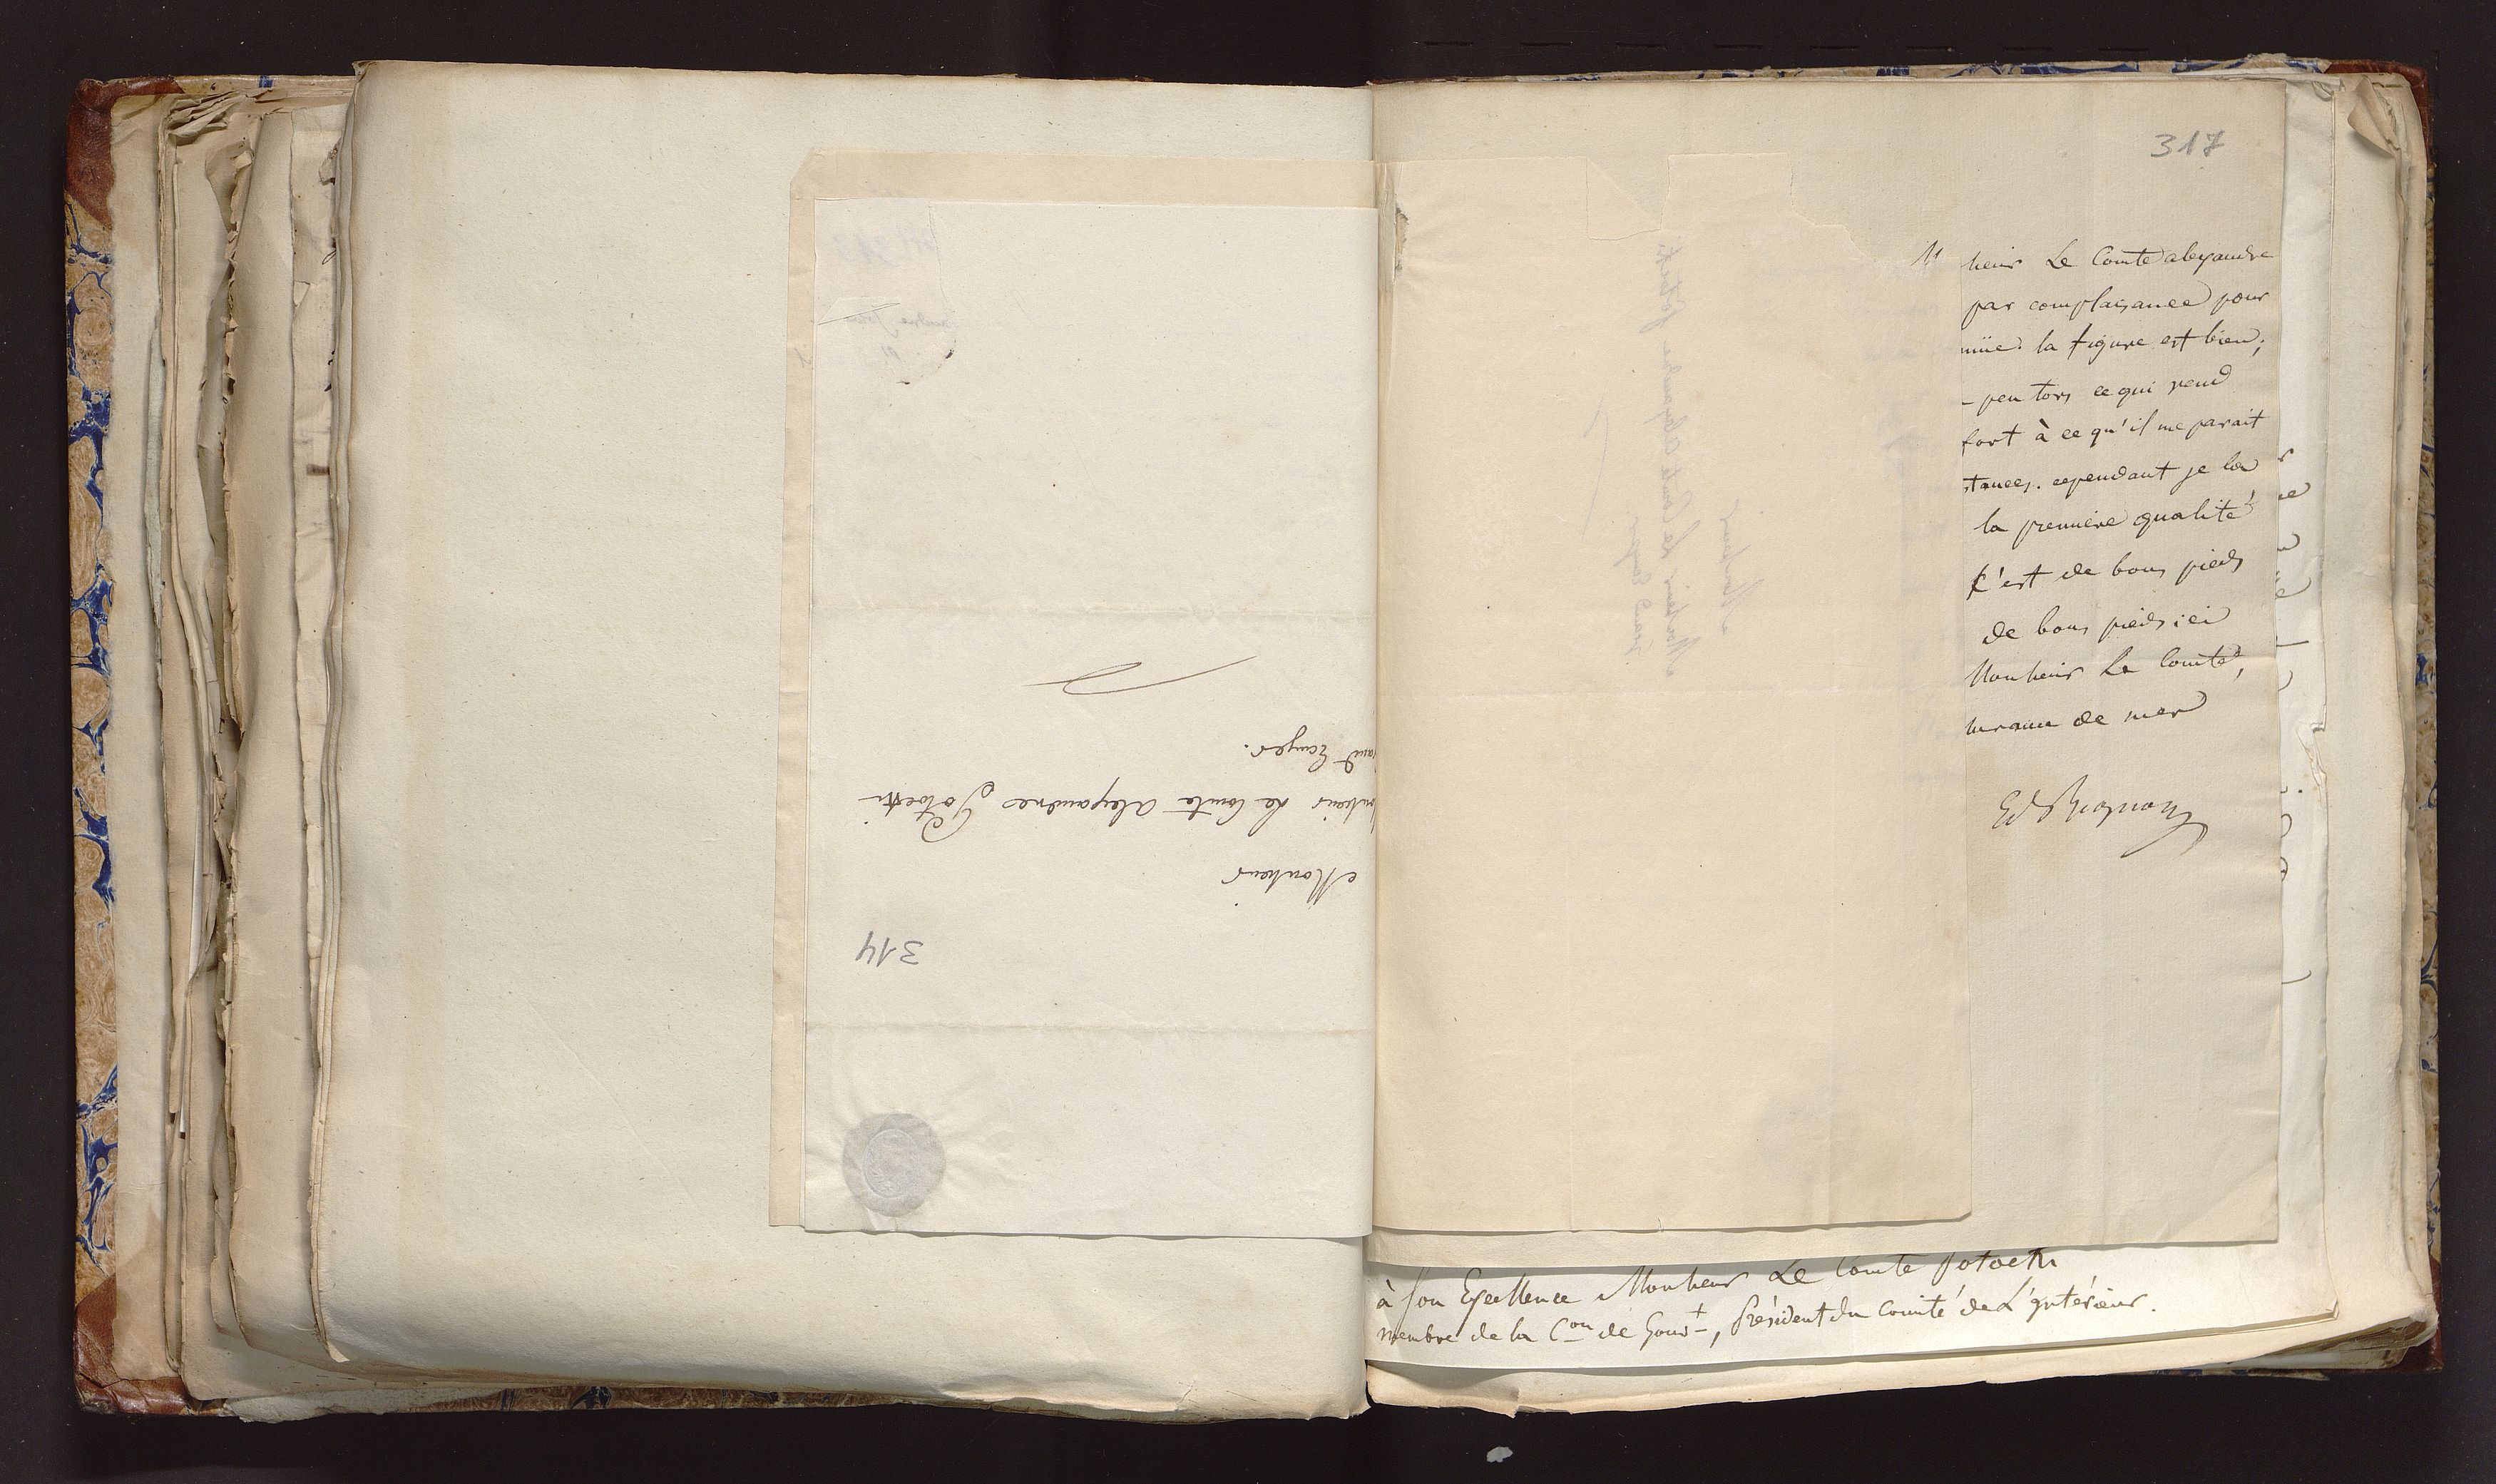 314
Monsieur
Monsieur Le Comte alexandre Potocki
Grand Ecuyer.
317
M
sieur Le Comte alexandre
par complaisance pour
nüe. la figure est bien,
peu tors ce qui rend
fort à ce qu'il me parait
stances. cependant je la
la première qualité
c'est de bons pieds
de bons pieds ici
Monsieur Le Comte,
de mes
Ed Bignon
à Son Excellence Monsieur Le Comte Potocki
membre de la Con de Gouvt, Président du Comité de L'Intérieur.